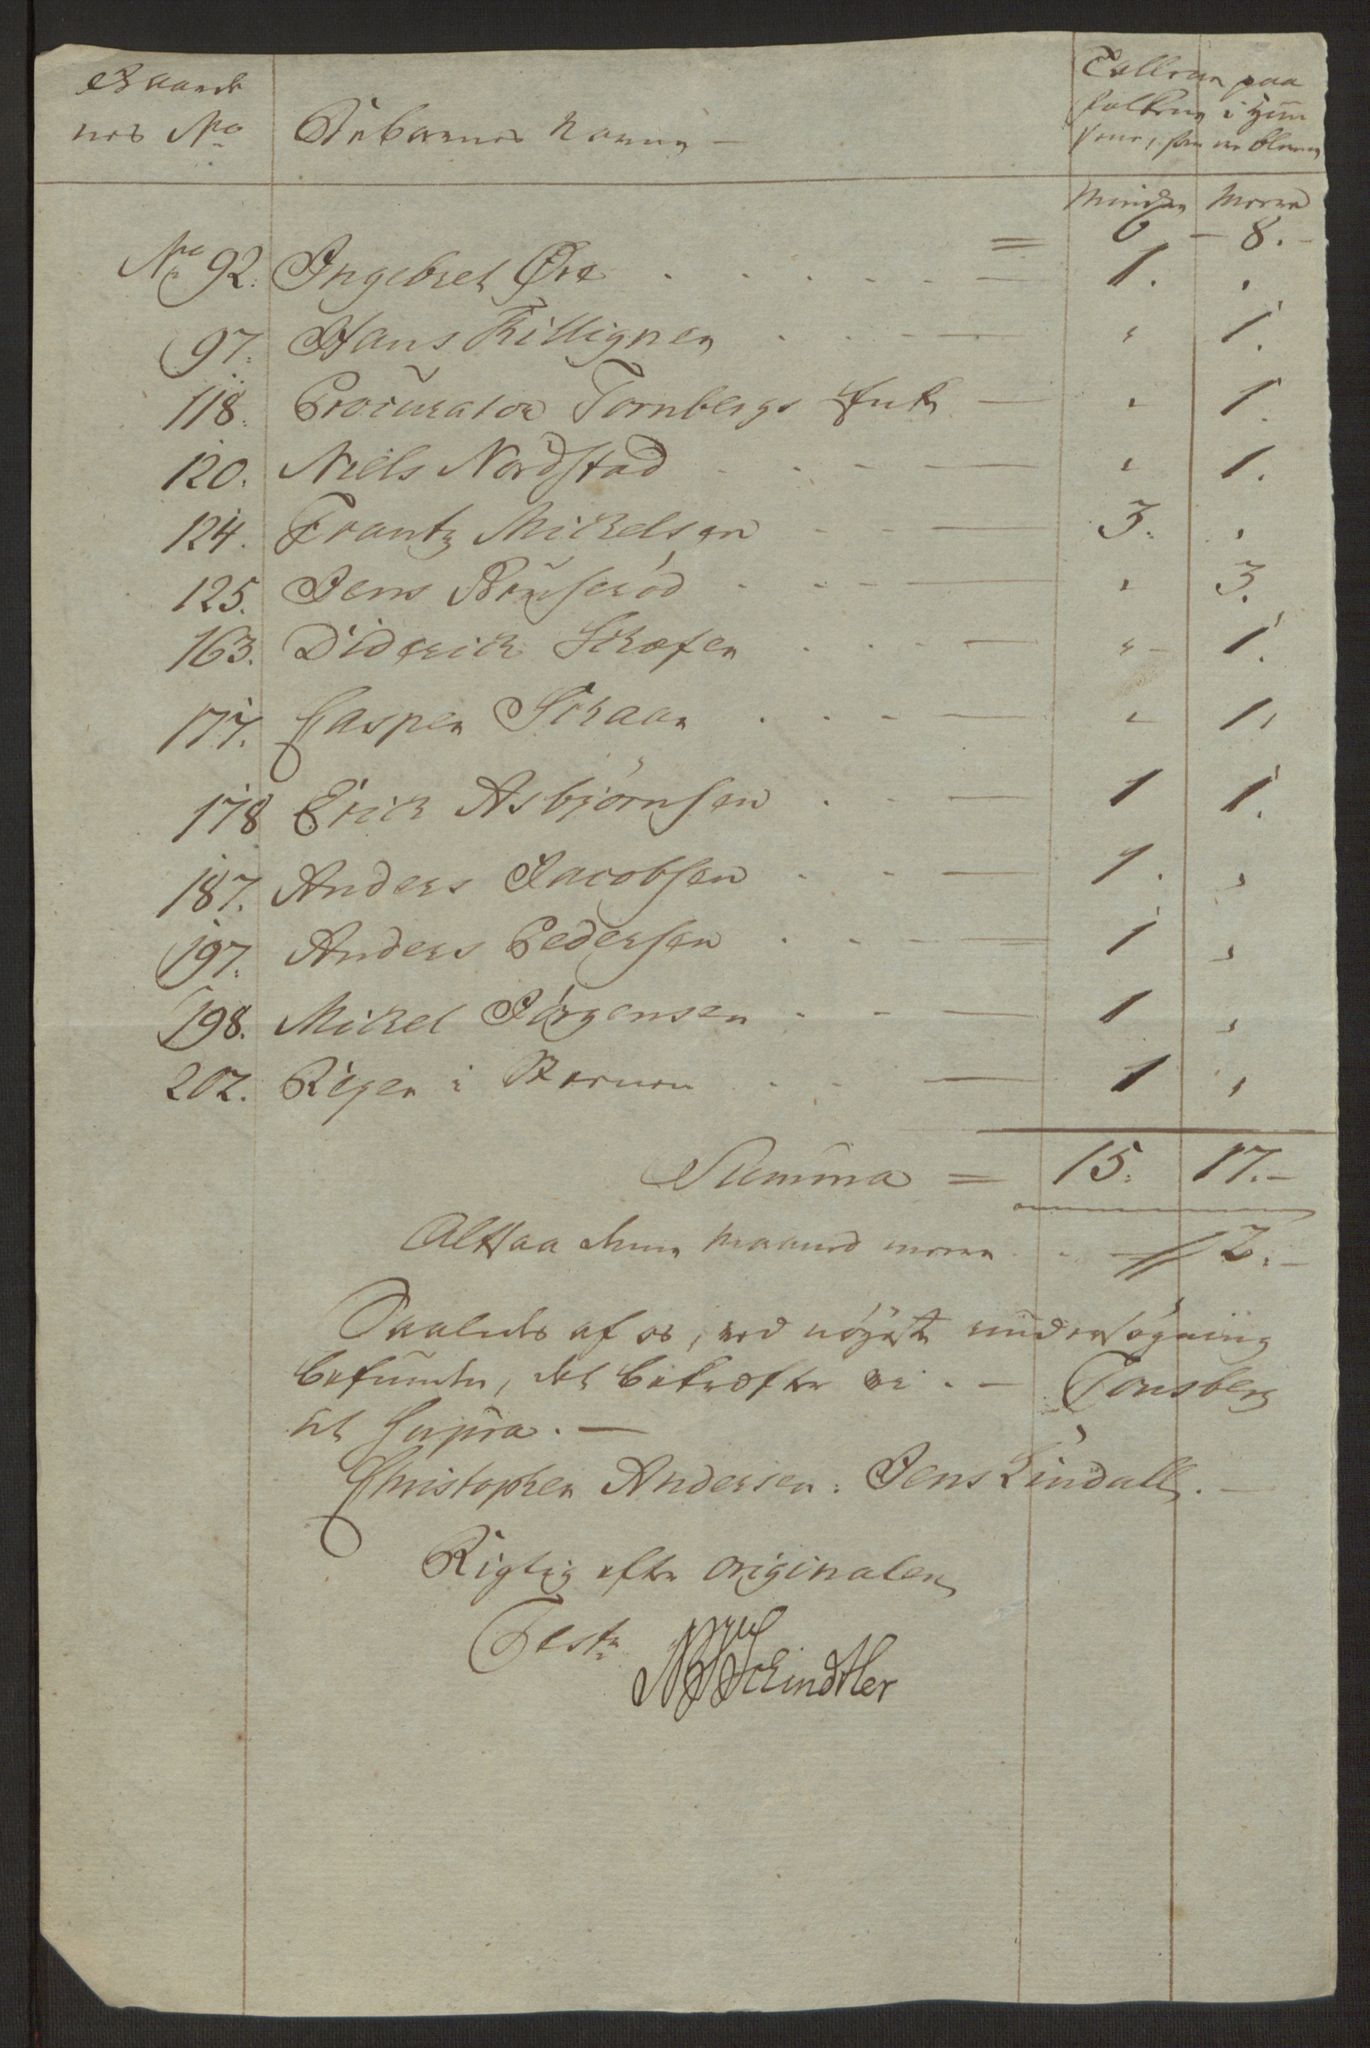 Gaarde Tallene paa
nes No. Beboernes Navne — folkene i Huu
sene, som er bleven
Minder Meere
= 6 — 8. —
No. 92. Ingebret Øre . . . . . — 1. ,
97. Hans Killignen . . . — " 1.
118. Procurator Tornbergs Enke — " 1.
120. Niels Nordstad . . . — " 1.
124. Frantz Mickelsen . . — 3. "
125. Jens Bruuserød . . . — " 3.
163. Diderich Schofen . . . — " 1.
177. Casper Schaar . . . — " 1.
178 Erich Asbjørnsen . . — 1 1.
187. Anders Jacobsen . . — 1. "
197. Anders Pedersen . . . — 1 "
198. Mickel Jörgensen . . — 1 "
202. Piger i Stærnen . . — 1 "
Summa = 15. 17. —
Altsaa denne Maaned meere . . — 2. —
Saaledes af os, ved nøyeste undersøgning
befunden, det bekræfter vi. — Tonsberg
ut supra. —
Christopher Andersen. Jens Lindall. —
Rigtig efter originalen
Test:
Schindtler